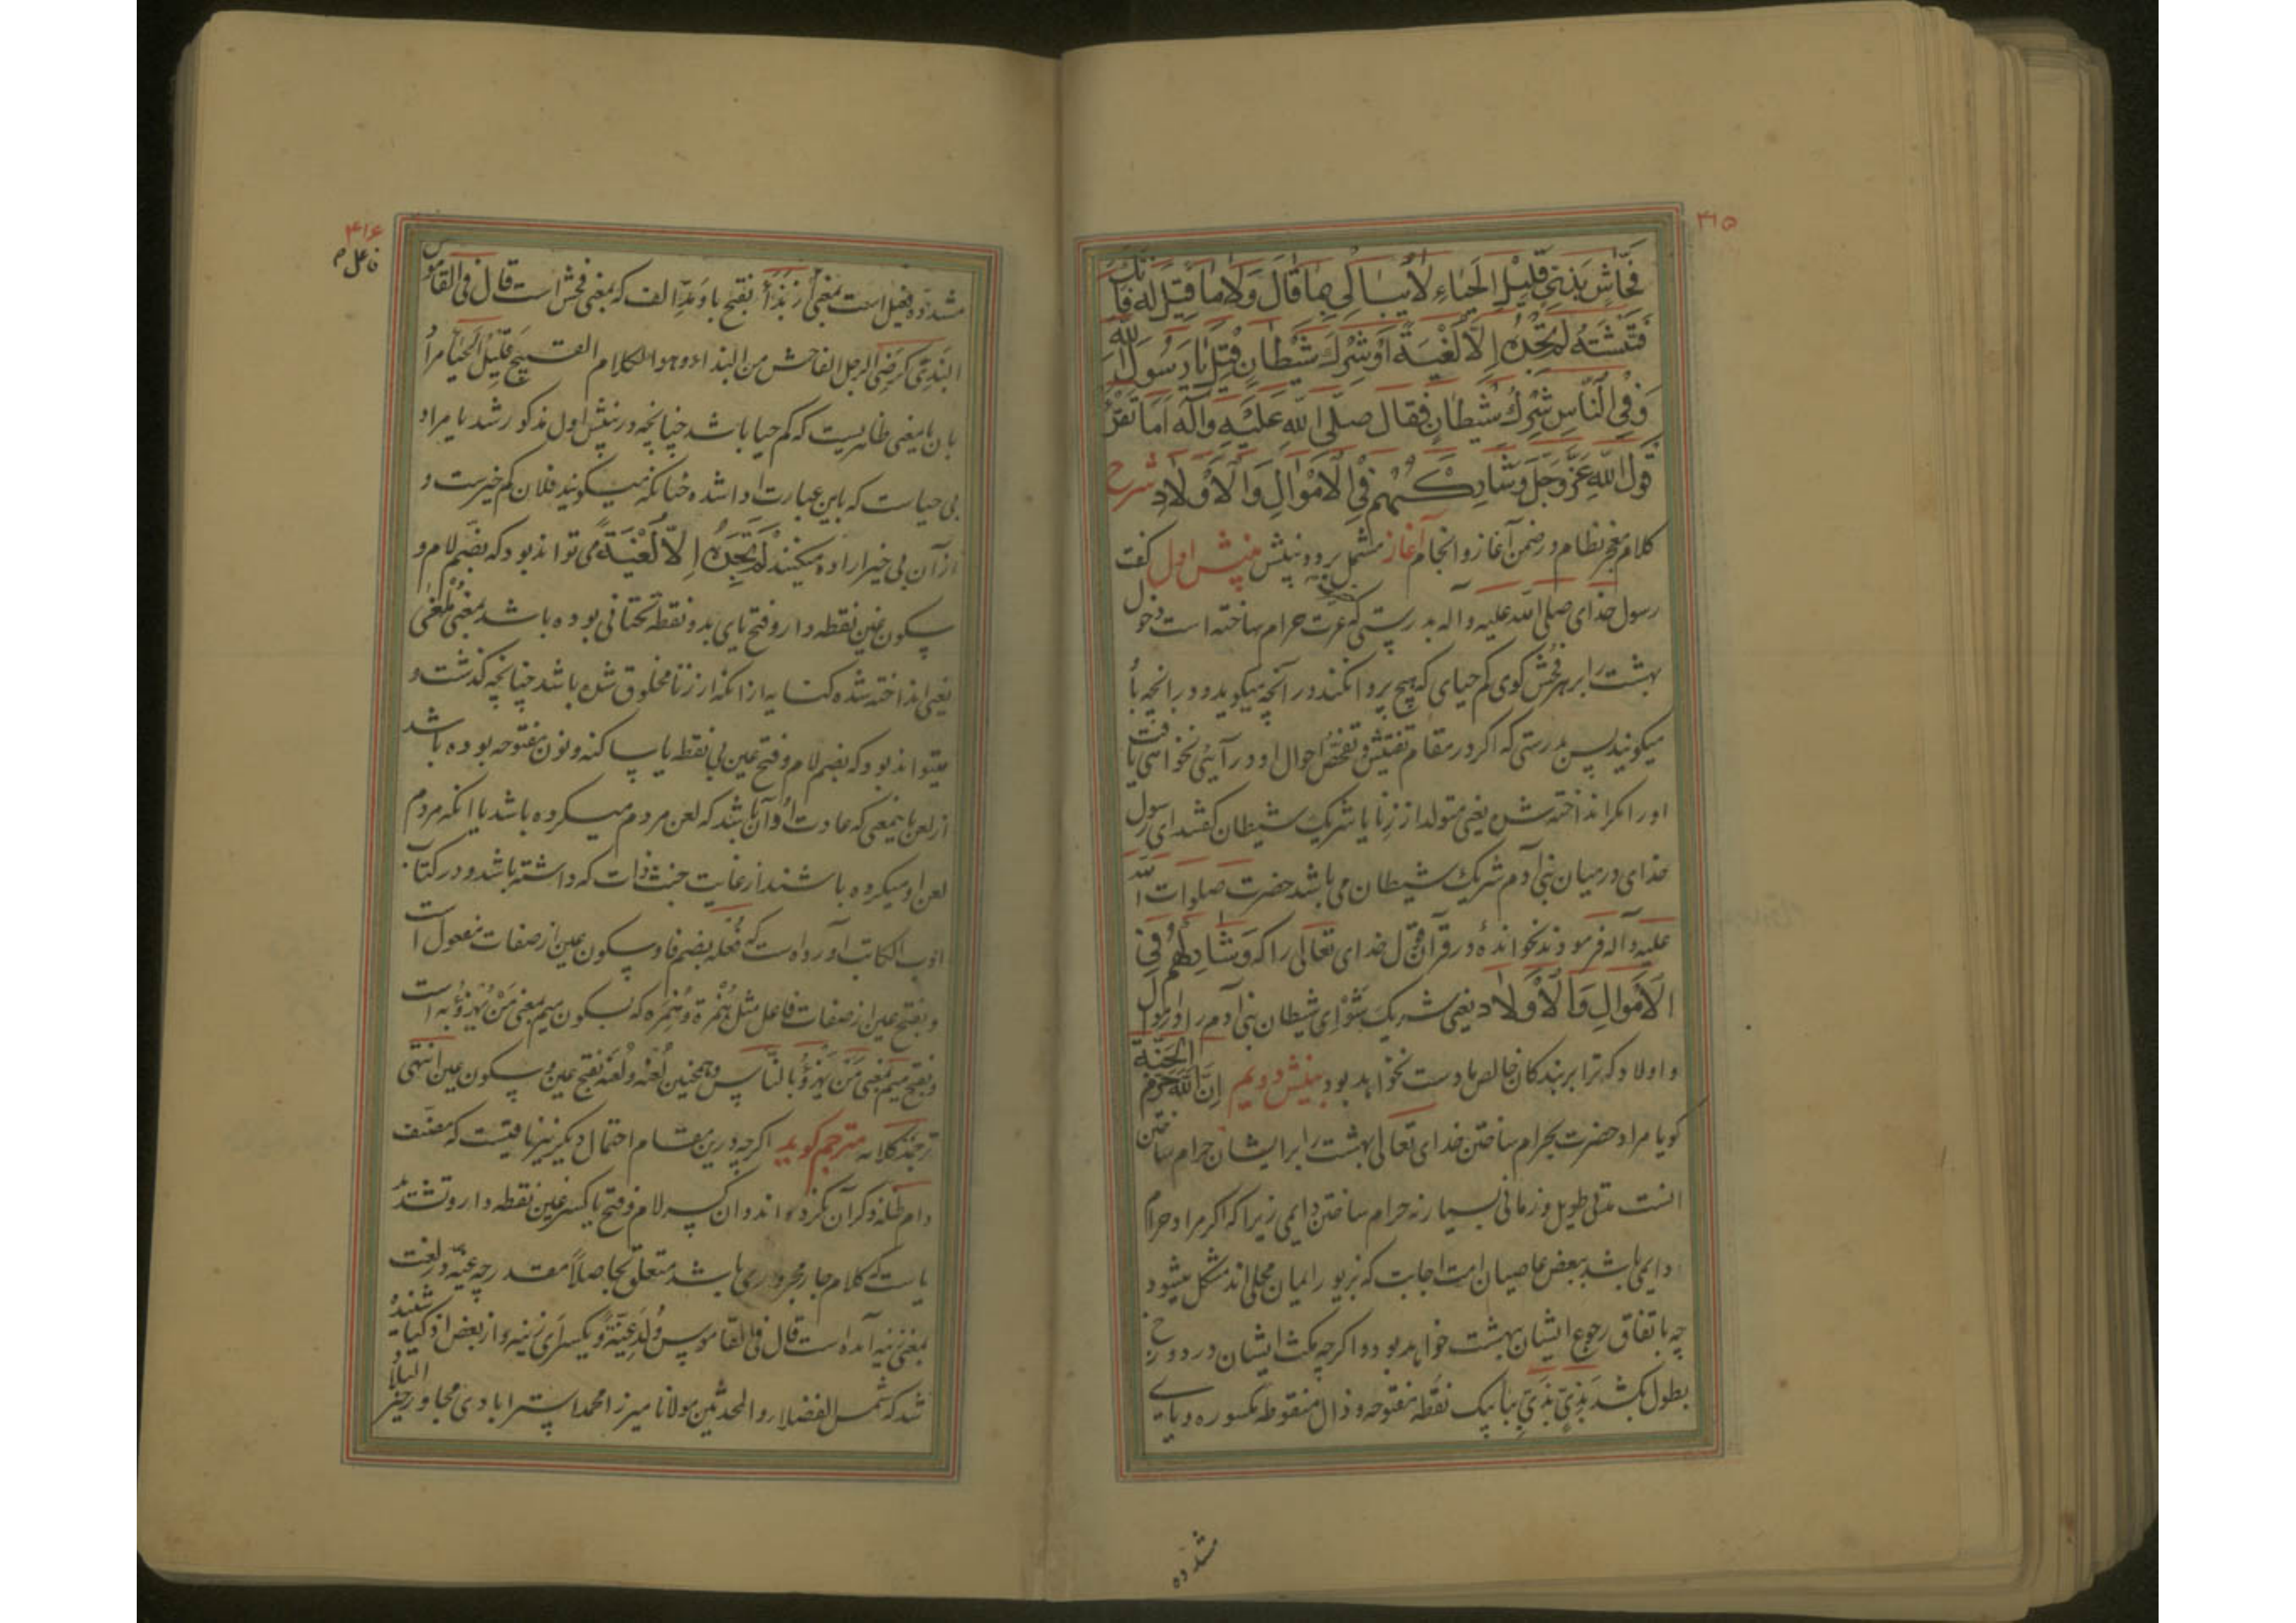 ۴۱۵
فَحَّاشٍ بَذِيّ قَلِيلِ الْحَيَاءِ لَا يُبَالِي بِمَا قَالَ وَلَا مَا قِيلَ لَهُ فَإِنَّكَ
فَتَّشْتَهُ لَمْ تَجِدْهُ إِلَّا لَغِيَةً أَوْ شِرْكَ شَيْطَانٍ قِيلَ يَا رَسُولَ اللّٰهِ
وَفِي النَّاسِ شِرْكُ شَيْطَانٍ فَقَالَ صَلَّى اللّٰهُ عَلَيْهِ وَآلِهِ أَمَا تَقْرَأُ
قَوْلَ اللّٰهِ عَزَّ وَجَلَّ وَشَارِكْهُمْ فِي الْأَمْوَالِ وَالْأَوْلَادِ شرح
کلام معجز نظام در ضمن آغاز و انجام آغاز مشتمل بر دو بینش بینش اول گفت
رسول خدای صلی الله علیه و آله بدرستی که عزت حرام ساخته است دخول
بهشت را بر هر فحش کوی کم حیای که هیچ پروا نکند در آنچه میکوید و در آنچه با
میکویند پس بدرستی که اکر در مقام تفتیش و تفحص احوال او در آیی نخواهی یافت
او را مکر انداخته شده یعنی متولد از زنا یا شریک شیطان کفتند ای رسول
خدای در میان بنی آدم شریک شیطان می باشد حضرت صلوات الله
علیه و آله فرمودند نخوانده در قرآن قول خدای تعالی را که وَشَارِكْهُمْ فِي
الْأَمْوَالِ وَالْأَوْلَادِ یعنی شریک شو ای شیطان بنی آدم را در اموال
و اولاد که ترا بر بندکان خالص ما دست نخواهد بود بینش دویم إِنَّ اللّٰهَ حَرَّمَ الْجَنَّةَ
کویا مراد حضرت بحرام ساختن خدای تعالی بهشت را بر ایشان حرام ساختن
انست مدتی طویل و زمانی بسیار نه حرام ساختن دایمی زیرا که اکر مراد حرام
دایمی باشد ببعض عاصیان امت اجابت که بزیور ایمان محلی اند مشکل میشود
چه باتفاق رجوع ایشان بهشت خواهد بود و اکرچه مکث ایشان در دوزخ
بطول بکشد بَذِيّ بَذِيّ ببا یک نقطه مفتوحه و ذال منقوطه مکسوره و یای
مشدده
۴۱۶
مشدده فعیل است بمعنی از بَذَاء بفتح با و مد الف که بمعنی فحش است قال فی القاموس
البذی کرضی الرجل الفاحش من البذاء و هو الکلام القبیح قَلِيلُ الْحَيَاءِ مراد
بان یا معنی ظاهریست که کم حیا باشد چنانچه در بینش اول مذکور شد یا مراد
بی حیاست که باین عبارت ادا شده چنانکه میکویند فلان کم خیرست و
از آن بی خیر اراده میکنند لَمْ تَجِدْهُ إِلَّا لَغْيَةً می تواند بود که بضم لام و
سکون غین نقطه دار و فتح یای بدو نقطه تحتانی بوده باشد بمعنی مُلغی
یعنی انداخته شده کنایه از انکه از زنا مخلوق شده باشد چنانچه کذشت و
میتواند بود که بضم لام و فتح عین بی نقطه یا ساکنه و نون مفتوحه بوده باشد
از لعن باینمعنی که عادت او آن باشد که لعن مردم میکرده باشد یا انکه مردم
لعن او میکرده باشند از غایت خبث ذات که داشته باشد و در کتاب
ادب الکاتب آورده است که فُعله بضم فا و سکون عین از صفات مفعول است
و بفتح عین از صفات فاعل مثل هُمْزة و هُمَزه که بسکون میم بمعنی مَنْ يُهْزَؤُ به است
و بفتح میم بمعنی مَنْ يَهْزَؤُ بالنّاس و همچنین لُعْنَه و لُعَنه بفتح عین و سکون عین انتهی
ترجمة کلامه مترجم کوید اکرچه درین مقام احتمال دیکر نیز یافتیست که مصنف
دام ظله ذکر آن نکرده اند و ان کسر لام و فتح یا کسر غین نقطه دار و تشدید
یاست که کلام جار مجروری باشد متعلق بحاصلاً مقدر چه غیّه در لغت
بمعنی زنیه آمده است قال فی القاموس وُلِدَ غَيَّةٍ و یکسر ای زنیه و از بعض اذکیا شنیده
شد که شمس الفضلاء و المحدثین مولانا میرزا محمد استرابادی مجاور خیر البلاد